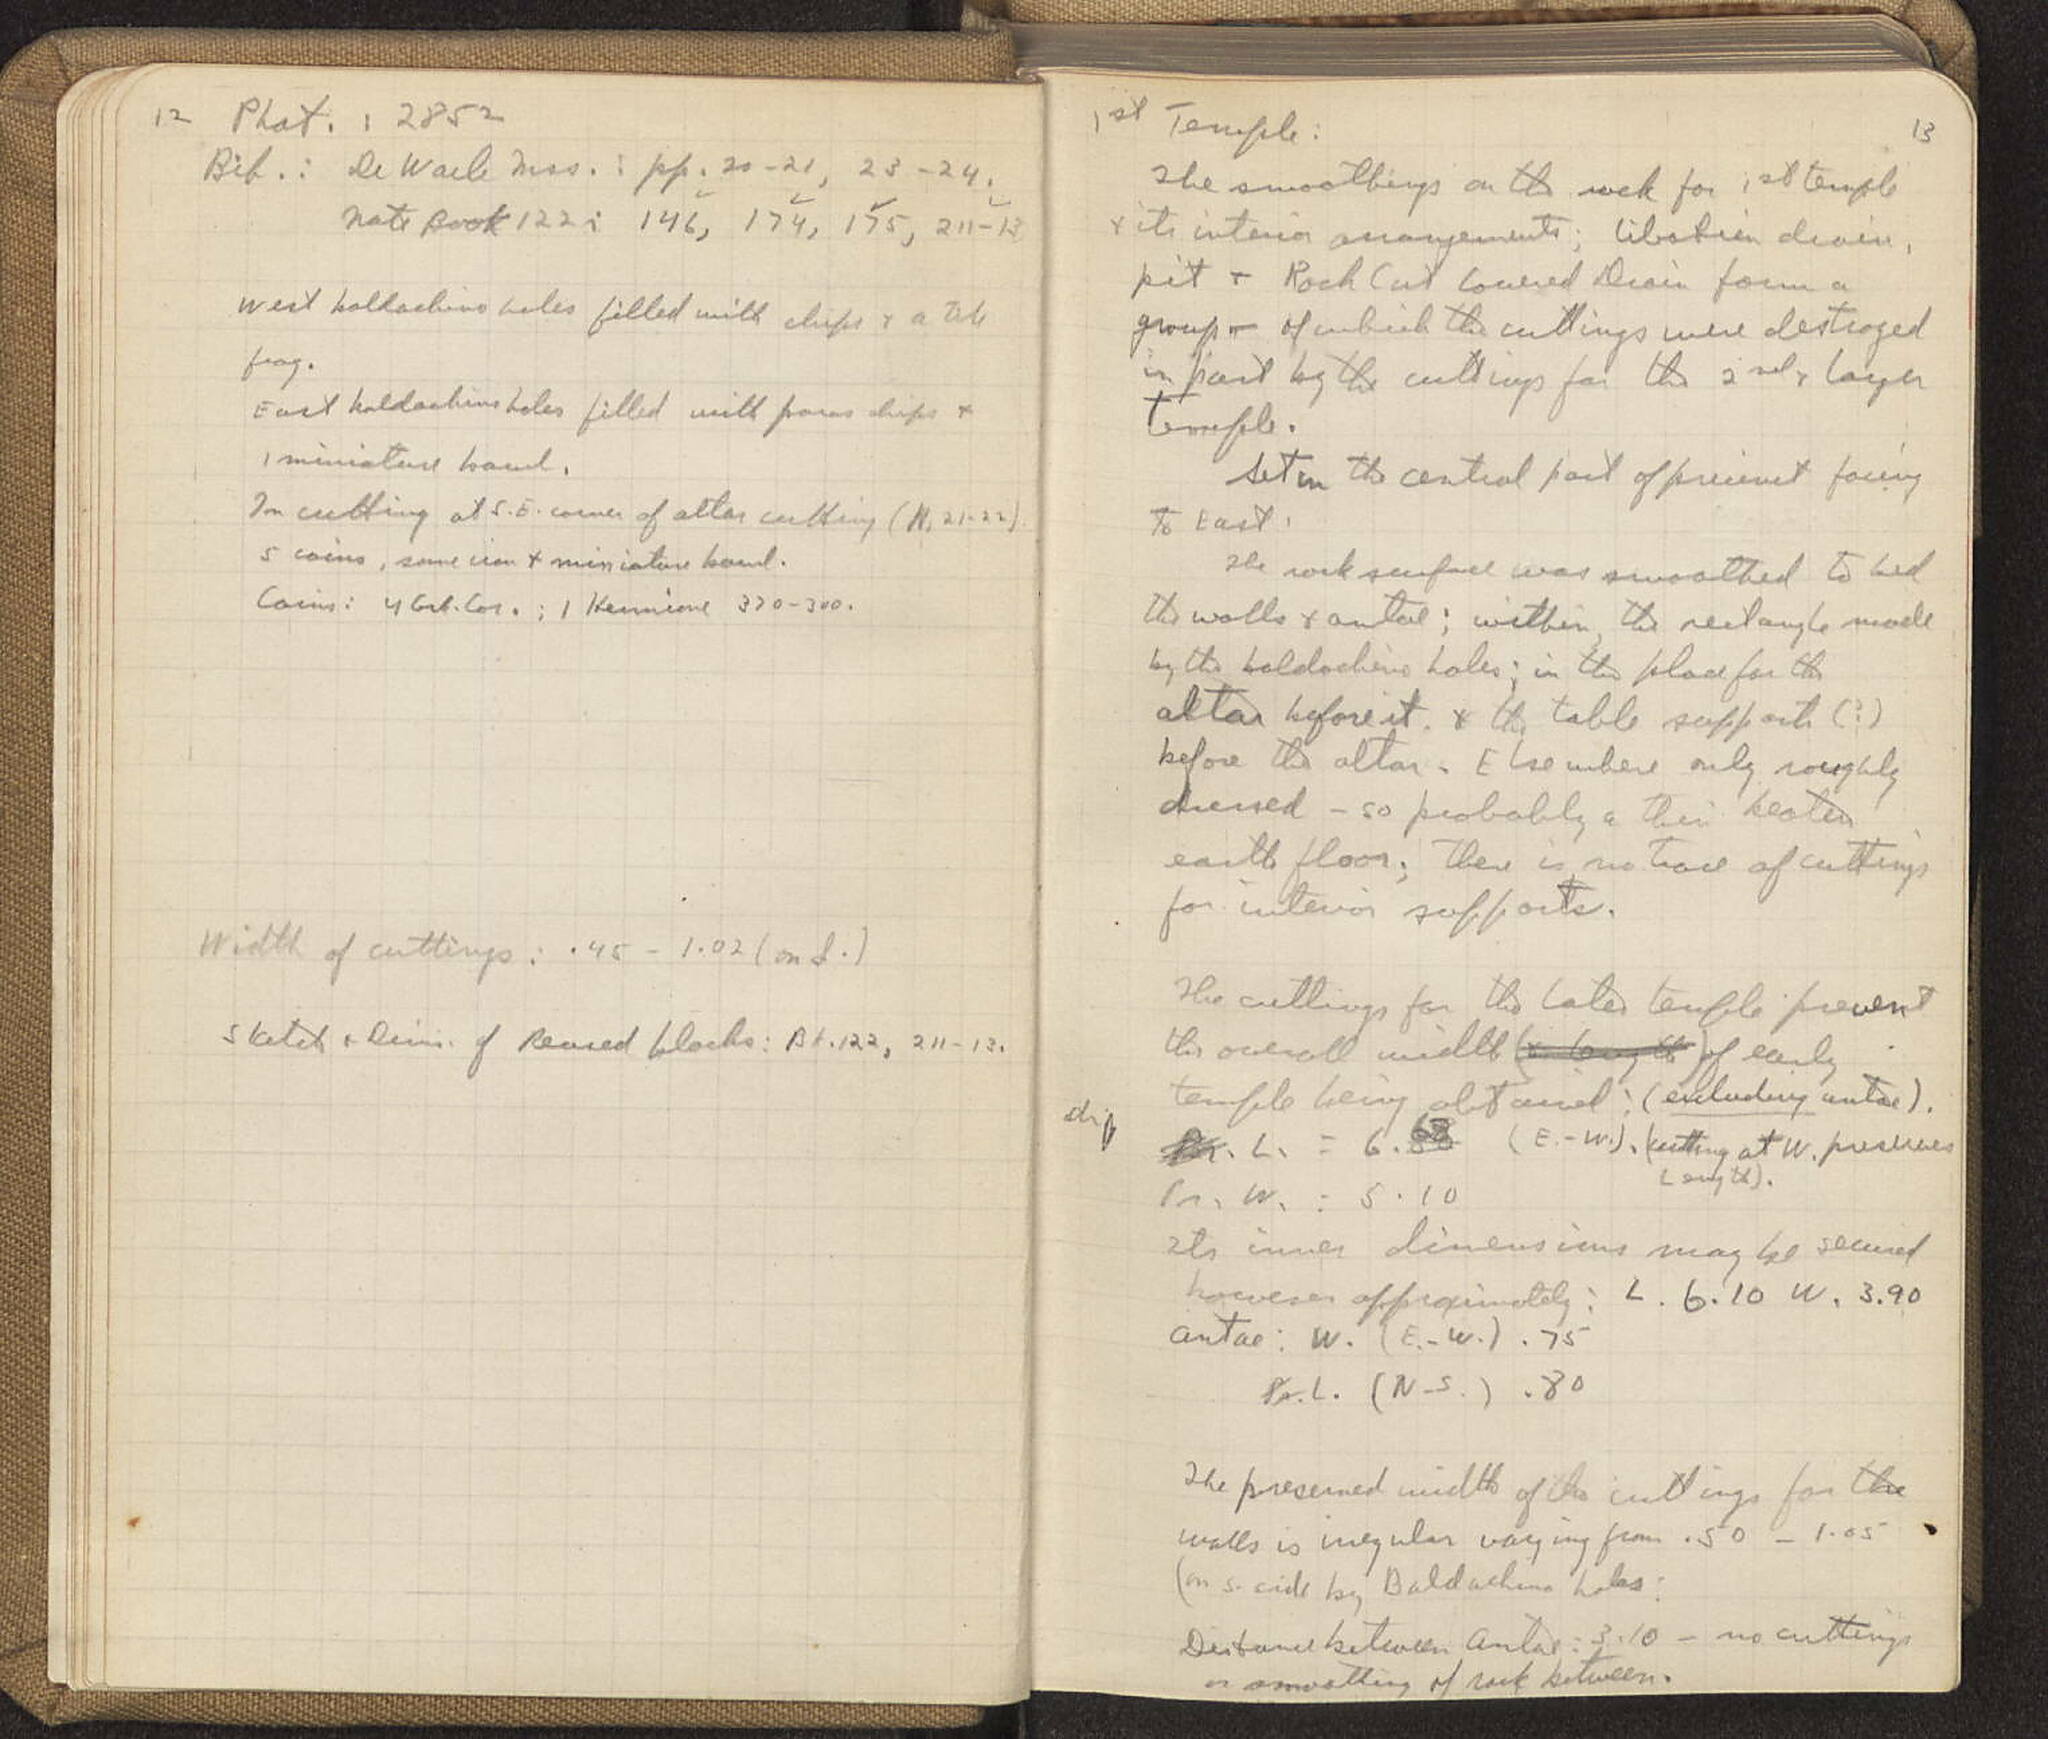 12 Phot. : 2852
Bib.: De Waele Mss. : pp. 20-21, 23-24.
Note Book 122: 146, 174, 175, 211-13
West baldachino holes filled with chips + a tile
frag.
East baldachino holes filled with poros chips +
1 miniature bowl.
In cutting at S.E. corner of altar cutting (N. 21-22)
5 coins, some iron + miniature bowl.
Coins: 4 Cor.; 1 Hermione 370-300.
Width of cuttings: .45 - 1.02 (on S.)
Sketch + Dim. of Reused blocks: Bk. 122, 211-13.
13
1st Temple:
The smoothings on the rock for 1st temple
+ its interior arrangements; libation drain,
pit + Rock Cut Covered Drain form a
group - of which the cuttings were destroyed
in part by the cuttings for the 2nd + larger
temple.
Set in the central part of precinct facing
to East.
The rock surface was smoothed to bed
the walls + antae; within the rectangle made
by the baldachino holes; in the place for the
altar before it. + the table supports (?)
before the altar. Elsewhere only roughly
dressed - so probably a thin beaten
earth floor; there is no trace of cuttings
for interior supports.
The cuttings for the later temple prevent
the overall width (+ length) of early
temple being obtained: (excluding antae).
Pr. L. = 6.68 (E.-W.). (cutting at W. preserves
Length).
Pr. W. : 5.10
Its inner dimensions may be secured
however approximately: L. 6.10 W. 3.90
antae: W. (E.-W.) .75
Pr. L. (N-S.) .80
The preserved width of the cuttings for the
walls is irregular varying from .50 - 1.05
(on S. side by Baldachino holes:
Distance between Antae: 3.10 - no cuttings
or smoothing of rock between.